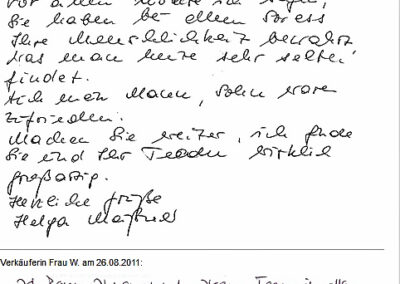 Vor allem möchte ich sagen,
Sie haben bei allem Stress
Ihre Menschlichkeit bewahrt
was man heute sehr selten
findet.
Auch mein Mann, Sohn waren
zufrieden.
Machen Sie weiter, ich finde
Sie und Ihr Team wirklich
großartig.
Herzliche Grüße
Helga
Verkäuferin Frau W. am 26.08.2011: